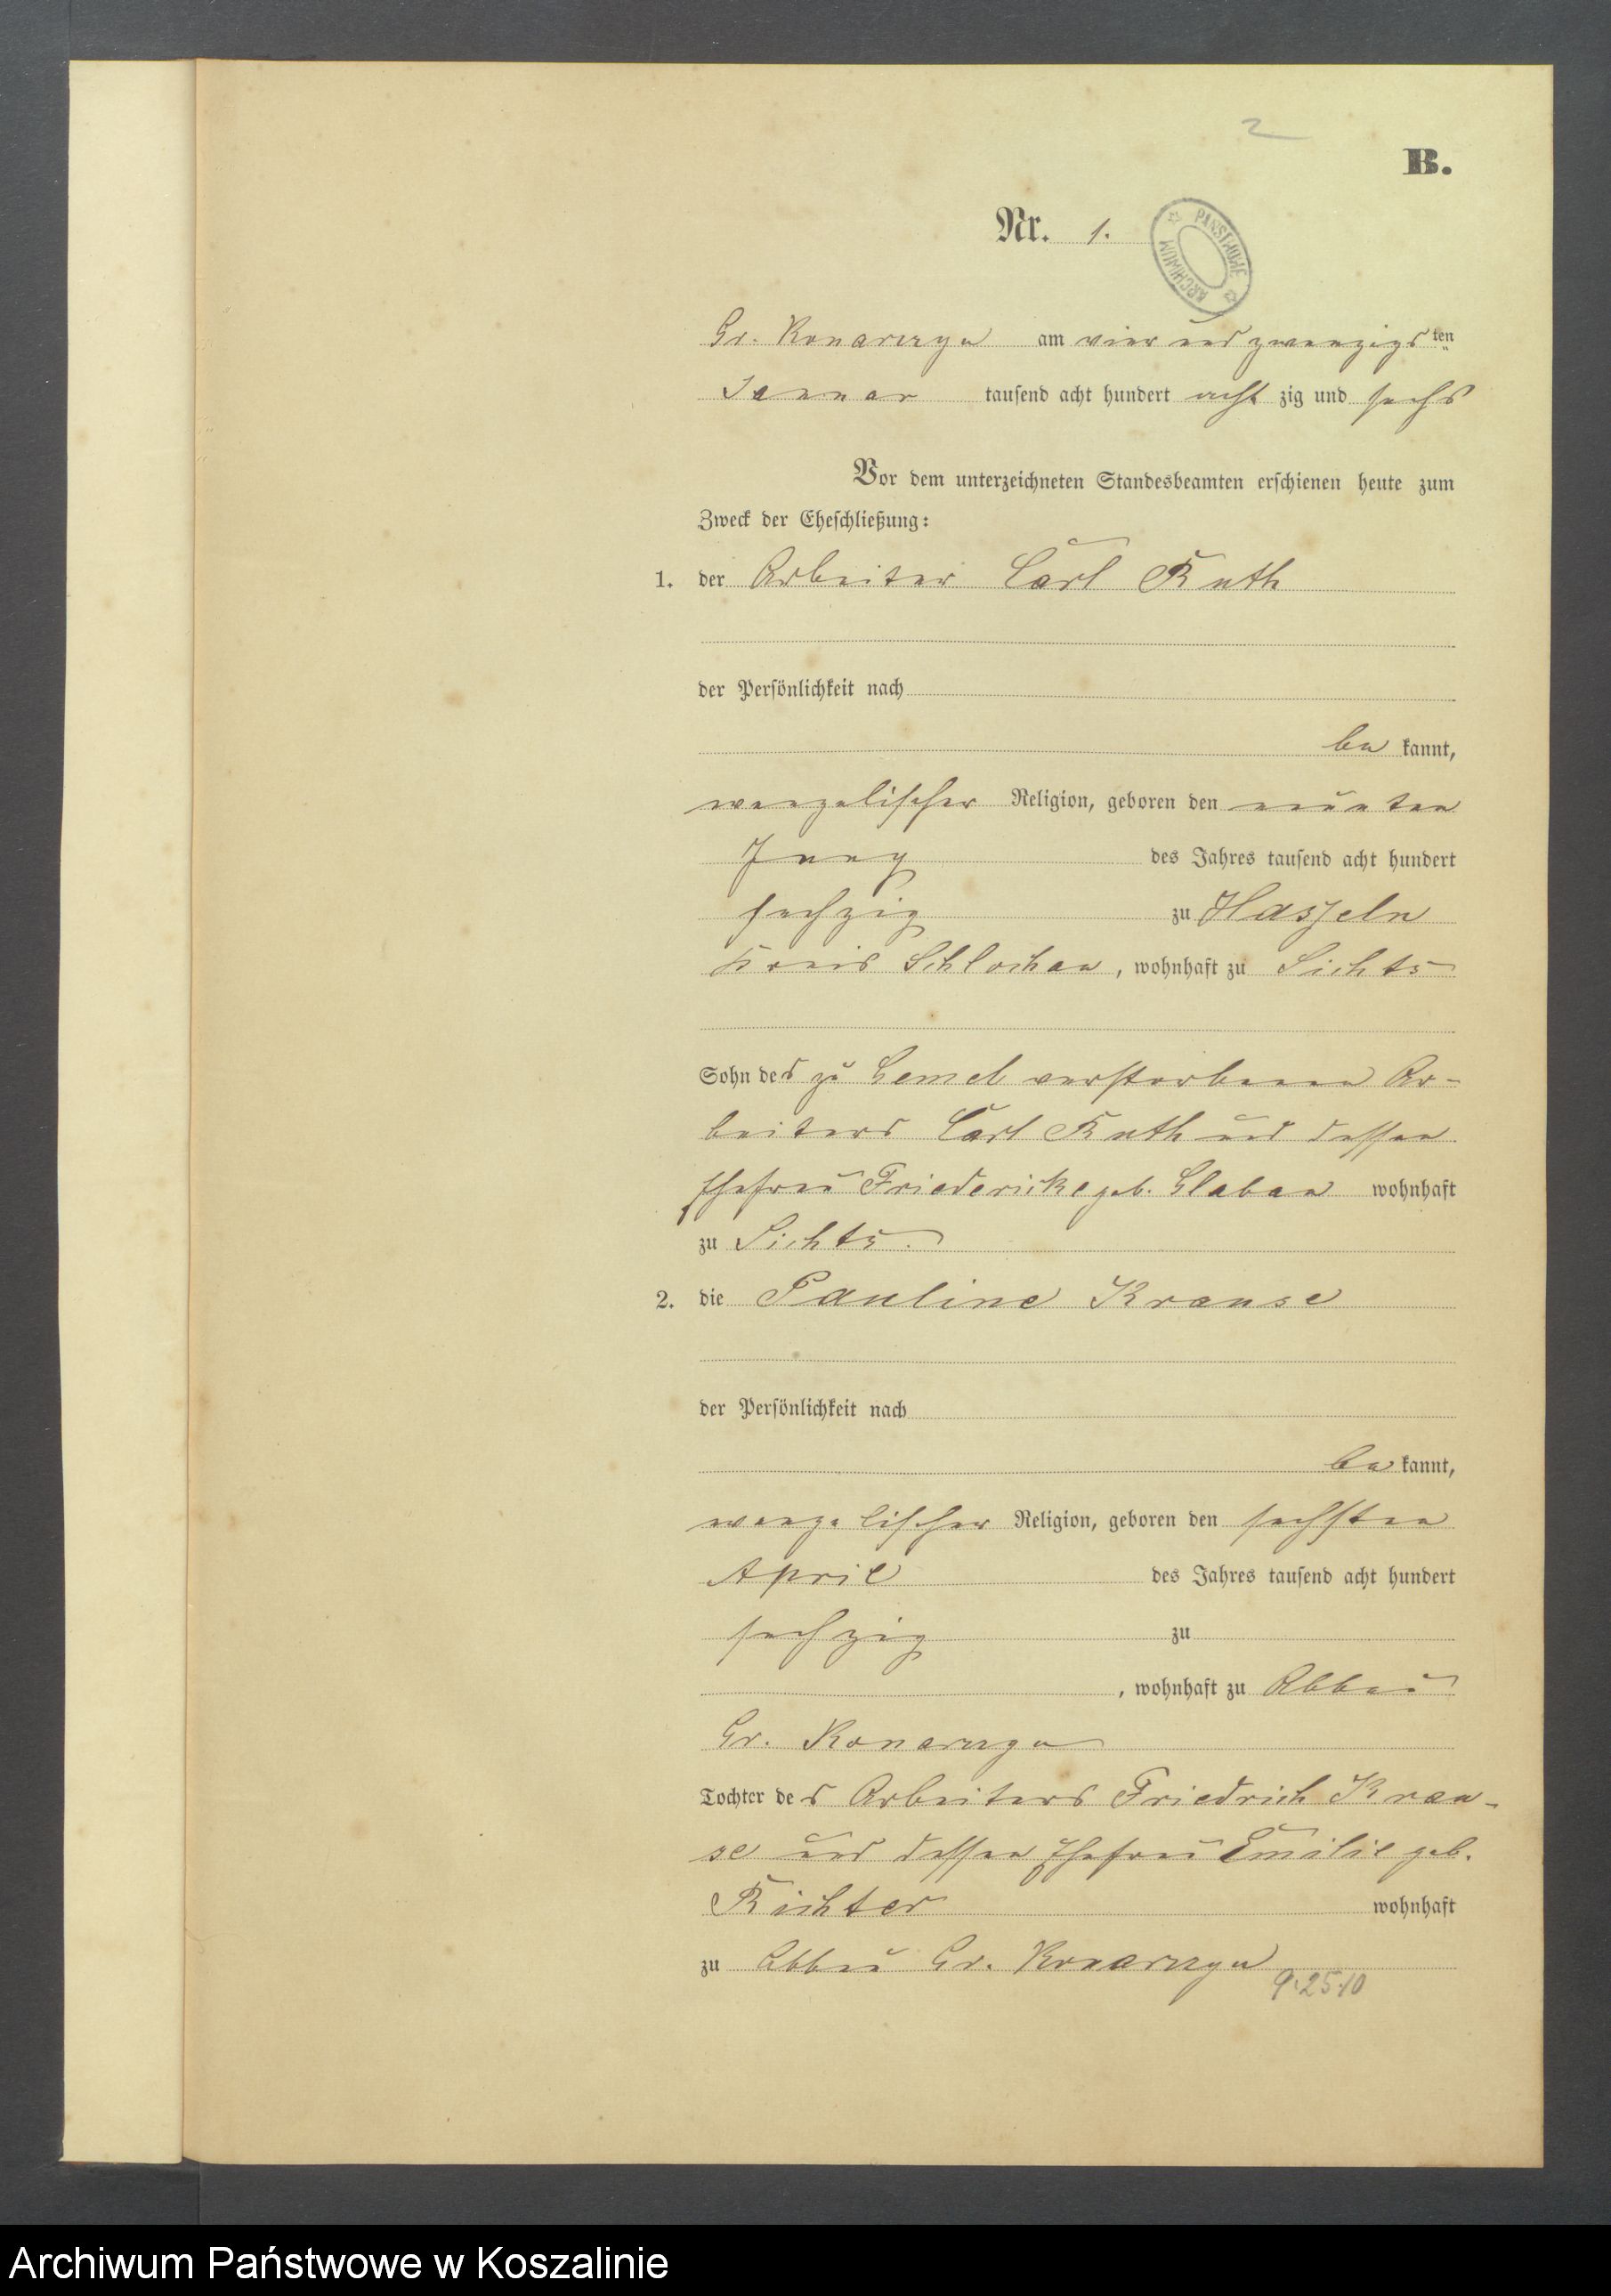 2
B.
Nr. 1.
ARCHIWUM PAŃSTWOWE
Gr. Konarczyn am vier und zwanzigsten
Januar tausend acht hundert acht zig und sechs
Vor dem unterzeichneten Standesbeamten erschienen heute zum
Zweck der Eheschließung:
1. der Arbeiter Carl Ruth
der Persönlichkeit nach
be kannt,
evangelischer Religion, geboren den neunten
des Jahres tausend acht hundert
sechzig zu Hasseln
Kreis Schlochau, wohnhaft zu Sichts
Sohn des zu Gemel verstorbenen Ar-
beiters Carl Ruth und dessen
Ehefrau Friedericke geb. wohnhaft
zu Sichts.
2. die Pauline Krause
der Persönlichkeit nach
be kannt,
evangelischer Religion, geboren den sechsten
April des Jahres tausend acht hundert
sechzig zu
, wohnhaft zu Abbau
Gr. Konarczyn
Tochter des Arbeiters Friedrich Krau-
se und dessen Ehefrau Emilie geb.
Richter wohnhaft
zu Abbau Gr. Konarczyn
9.25.10
Archiwum Państwowe w Koszalinie